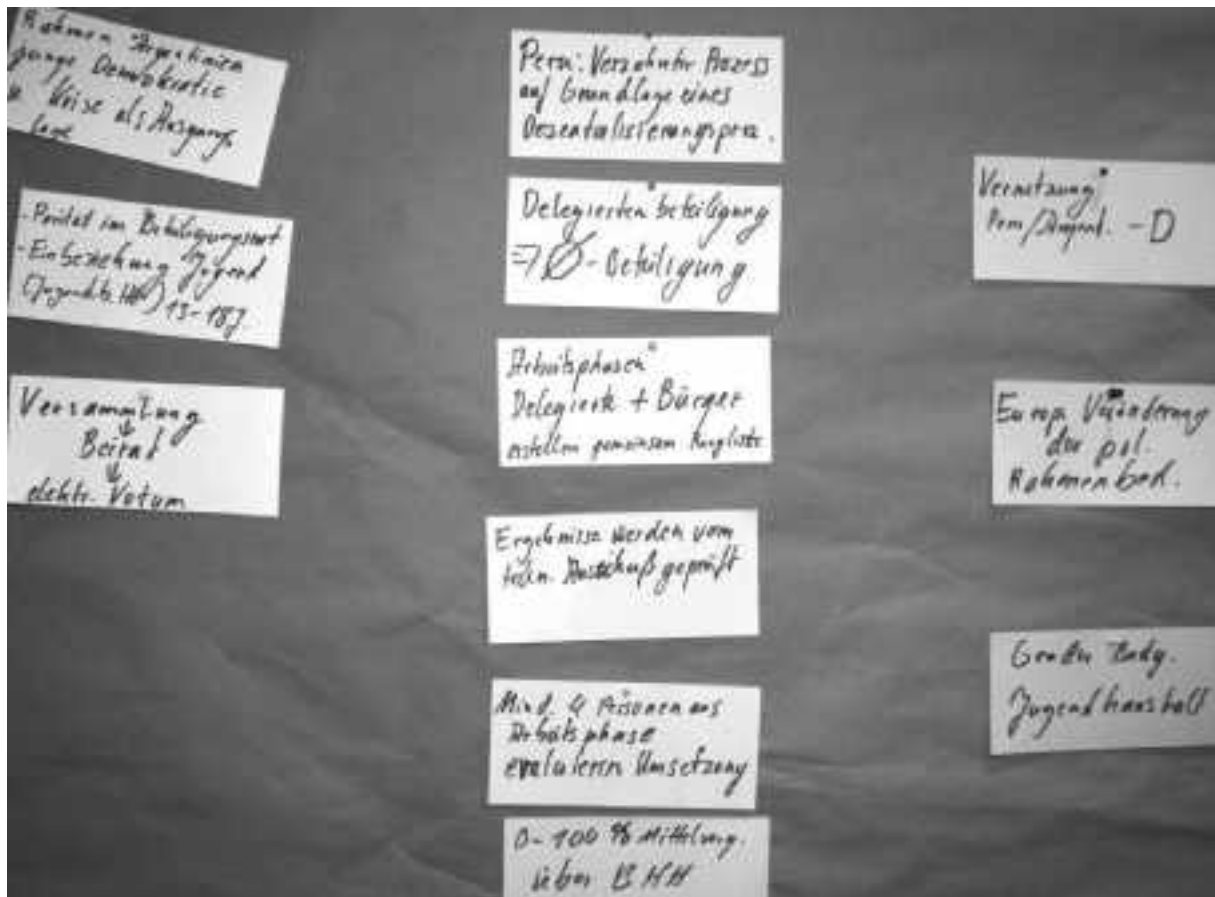 Rahmen Argentinien
junge Demokratie
u. Krise als Ausgangs
lage
- Parität im Beteiligungsrat
- Einbeziehung Jugend
13-18J.
Versammlung
↓
Beirat
↓
elektr. Votum
Peru: Verzahnter Prozess
auf Grundlage eines
Dezentralisierungsproz.
Delegiertenbeteiligung
=> Ø-Beteiligung
Arbeitsphasen
Delegierte + Bürger
erstellen gemeinsam Rangliste
Ergebnisse werden vom
techn. Ausschuß geprüft
Mind. 4 Personen aus
Arbeitsphase
evaluieren Umsetzung
0-100 % Mittelverg.
über BHH
Vernetzung
Peru/Argent. - D
Europa Veränderung
der pol.
Rahmenbed.
Gender Budg.
Jugendhaushalt